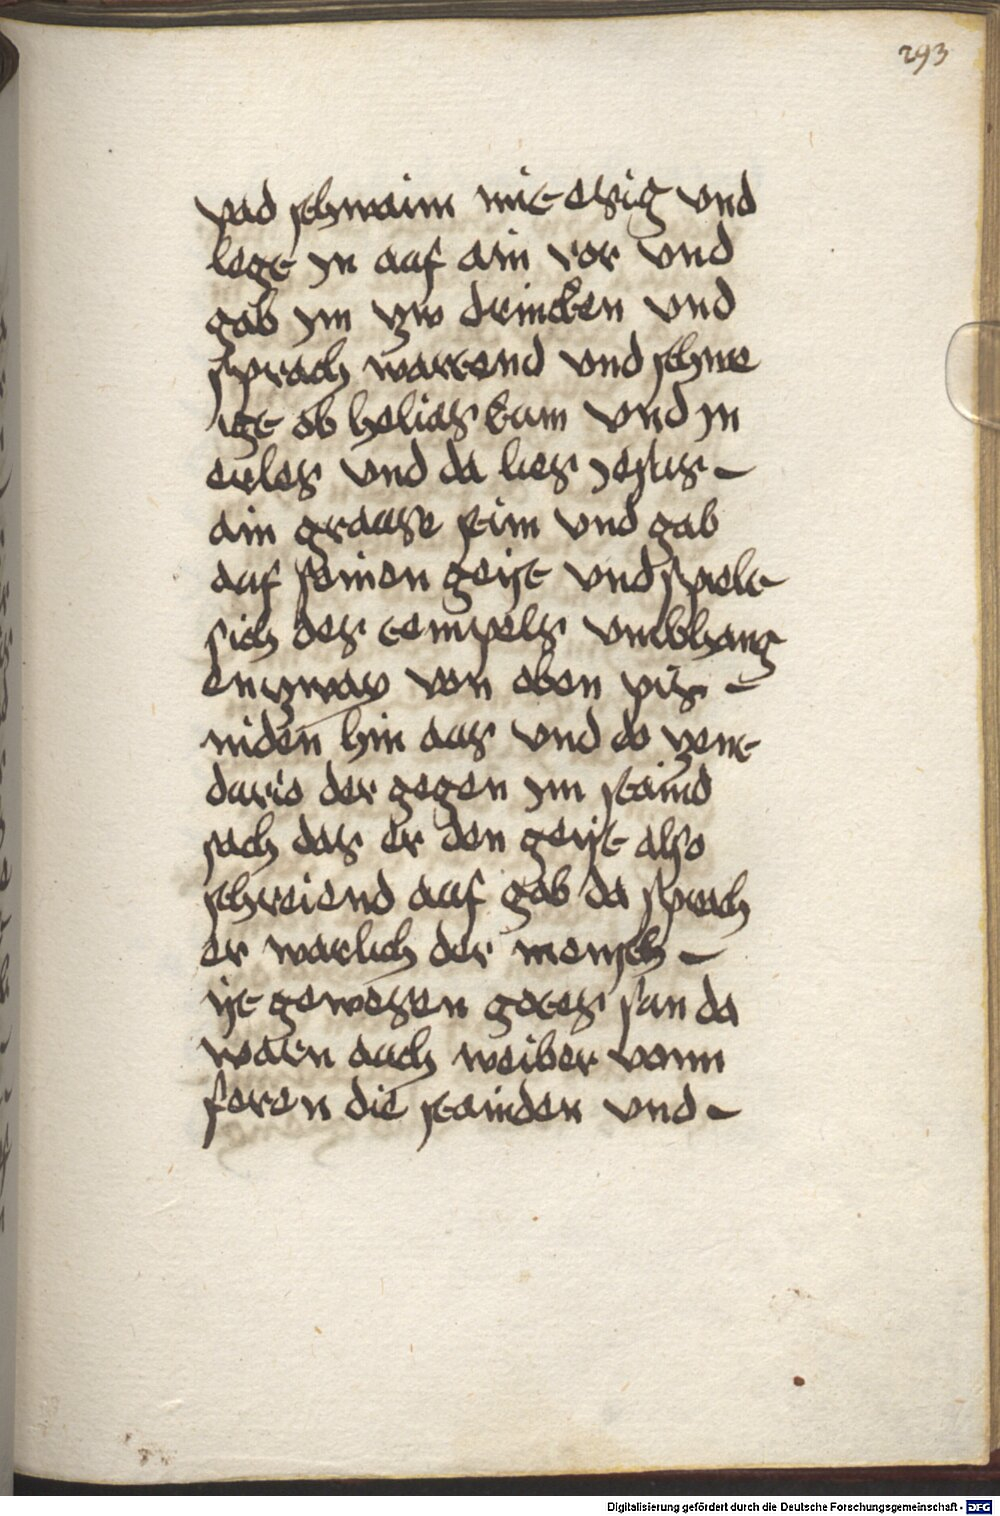 293
pad schwaim mit esig vnd
legt yn auf ain ror vnd
gab ym zw drincken vnd
sprach wartend vnd schwe
igt ob helias kum vnd yn
erles vnd da lies yesus
ain grause stim vnd gab
auf seinen geist vnd spielt
sich des tempels vmbhang
entzway von oben pis
niden hin aus vnd do zent
durio der gegen ym stuind
sach das er den geist also
schreiend auf gab da sprach
er warlich der mensch
ist gewesen gotes sun da
warn auch weiber vonn
feren die stuinden vnd
Digitalisierung gefördert durch die Deutsche Forschungsgemeinschaft - DFG